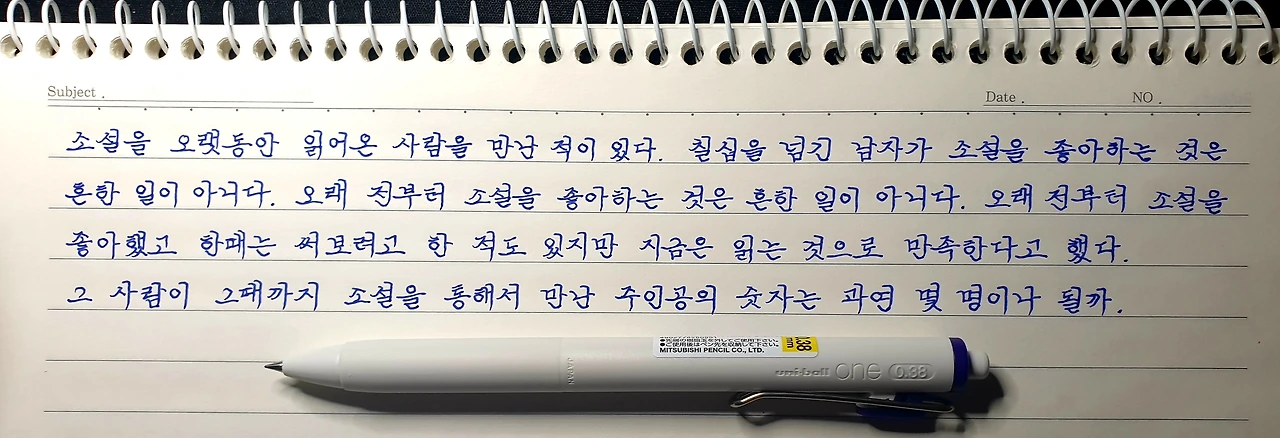 Subject .
Date .
NO .
소설을 오랫동안 읽어온 사람을 만난 적이 있다. 칠십을 넘긴 남자가 소설을 좋아하는 것은
흔한 일이 아니다. 오래 전부터 소설을 좋아하는 것은 흔한 일이 아니다. 오래 전부터 소설을
좋아했고 한때는 써보려고 한 적도 있지만 지금은 읽는 것으로 만족한다고 했다.
그 사람이 그때까지 소설을 통해서 만난 주인공의 숫자는 과연 몇 명이나 될까.
●先端の樹脂玉を外してご使用下さい。
●ご使用後はペン先を収納して下さい。
MITSUBISHI PENCIL CO., LTD.
0.38
mm
JAPAN
uni-ball one 0.38